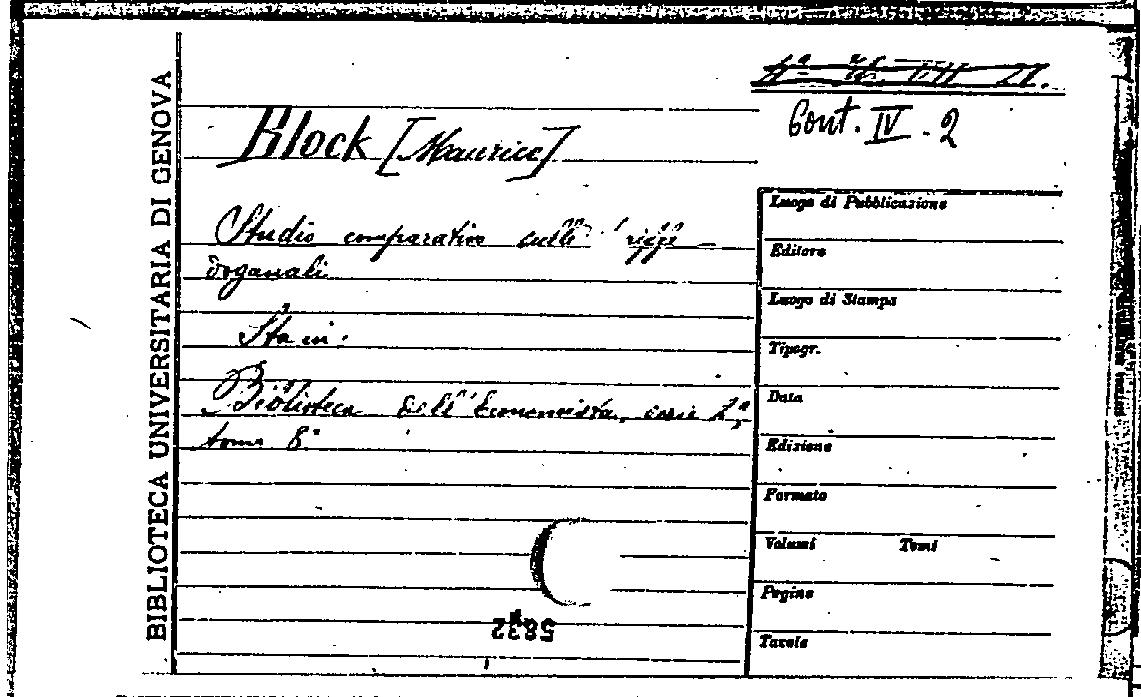 BIBLIOTECA UNIVERSITARIA DI GENOVA
Cont. IV - 2
Block [Maurice]
Studio comparativo sulle
doganali
Sta in:
Biblioteca dell'Economista, serie 2ª,
tomo 8°
5832
Luogo di Pubblicazione
Editore
Luogo di Stampa
Tipogr.
Data
Edizione
Formato
Volumi Tomi
Pagine
Tavole